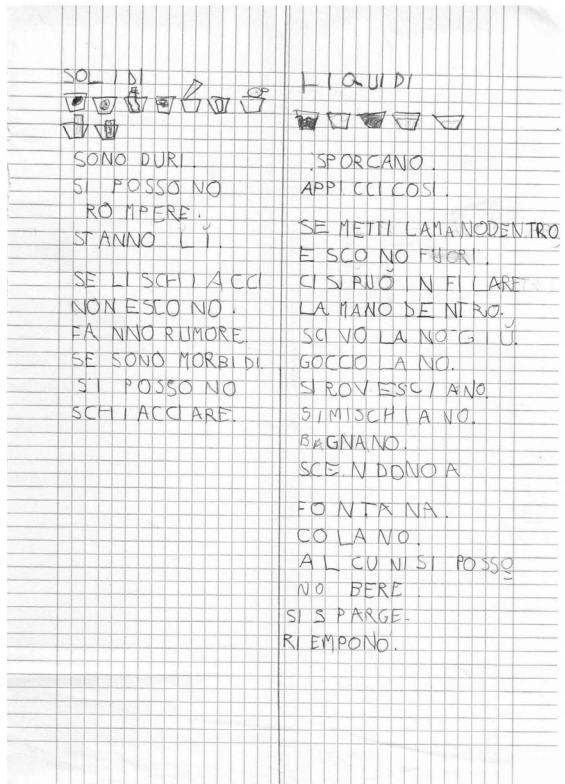 SOLIDI
SONO DURI.
SI POSSONO
ROMPERE.
STANNO LÌ.
SE LI SCHIACCI
NON ESCONO.
FANNO RUMORE
SE SONO MORBIDI.
SI POSSONO
SCHIACCIARE.
LIQUIDI
SPORCANO.
APPICCICOSI.
SE METTI LA MANO DENTRO
ESCONO FUORI.
CI SI PUÒ INFILARE
LA MANO DENTRO.
SCIVOLANO GIÙ.
GOCCIOLANO.
SI ROVESCIANO.
SI MISCHIANO.
BAGNANO.
SCENDONO A
FONTANA.
COLANO.
ALCUNI SI POSSO
NO BERE.
SI SPARGE.
RIEMPONO.